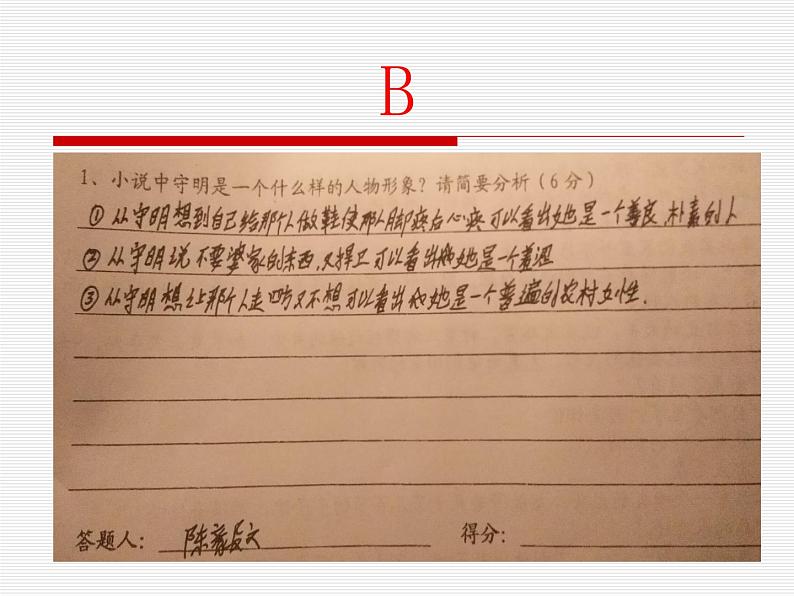 B
1、小说中守明是一个什么样的人物形象？请简要分析（6分）
①从守明想到自己给那个人做鞋使那人脚疼后心疼可以看出她是一个善良，朴素的人
②从守明说不要婆家的东西，又捍卫可以看出她是一个羞涩
③从守明想让那个人走四方又不想可以看出她是一个普遍的农村女性.
答题人： 陈
得分：